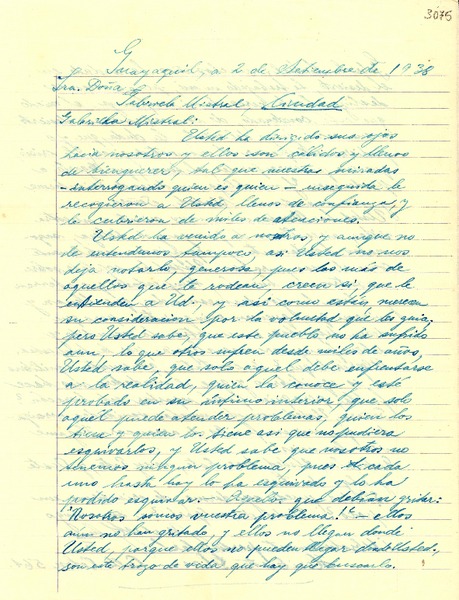 3075
Guayaquil, a 2 de Setiembre de 1938
Sra. Doña
Gabriela Mistral. Ciudad
Gabriela Mistral:
Usted ha dirigido sus ojos
hacia nosotros y ellos son cálidos y llenos
de bienquerer, tal que nuestras miradas
-interrogando quien es quien- enseguida le
recogieron a Usted, llenos de confianza, y
le cubrieron de miles de atenciones.
Usted ha venido a nosotros y aunque no
le entendemos tampoco, así Usted no nos
deja notarlo, generosa, pues los más de
aquellos que le rodean, creen sí, que le
entienden a Ud., y así como están merecen
su consideracion por la voluntad que les guía,
pero Usted sabe, que este pueblo no ha sufrido
aun, lo que otros sufren desde miles de años,
Usted sabe, que solo aquél debe enfrentarse
a la realidad, quien la conoce y esté
probado en su íntimo interior, que solo
aquél puede atender problemas, quien los
tiene y quien los tiene así que no pudiera
esquivarlos, y Usted sabe que nosotros no
tenemos ningun problema, pues cada
uno hasta hoy lo ha esquivado y lo ha
podido esquivar. - que debían gritar:
"Nosotros somos vuestra problema!" - ellos
aun no han gritado y ellos no llegan donde
Usted, porque ellos no pueden llegar donde Usted,
son este trozo de vida que hay que buscarlo.